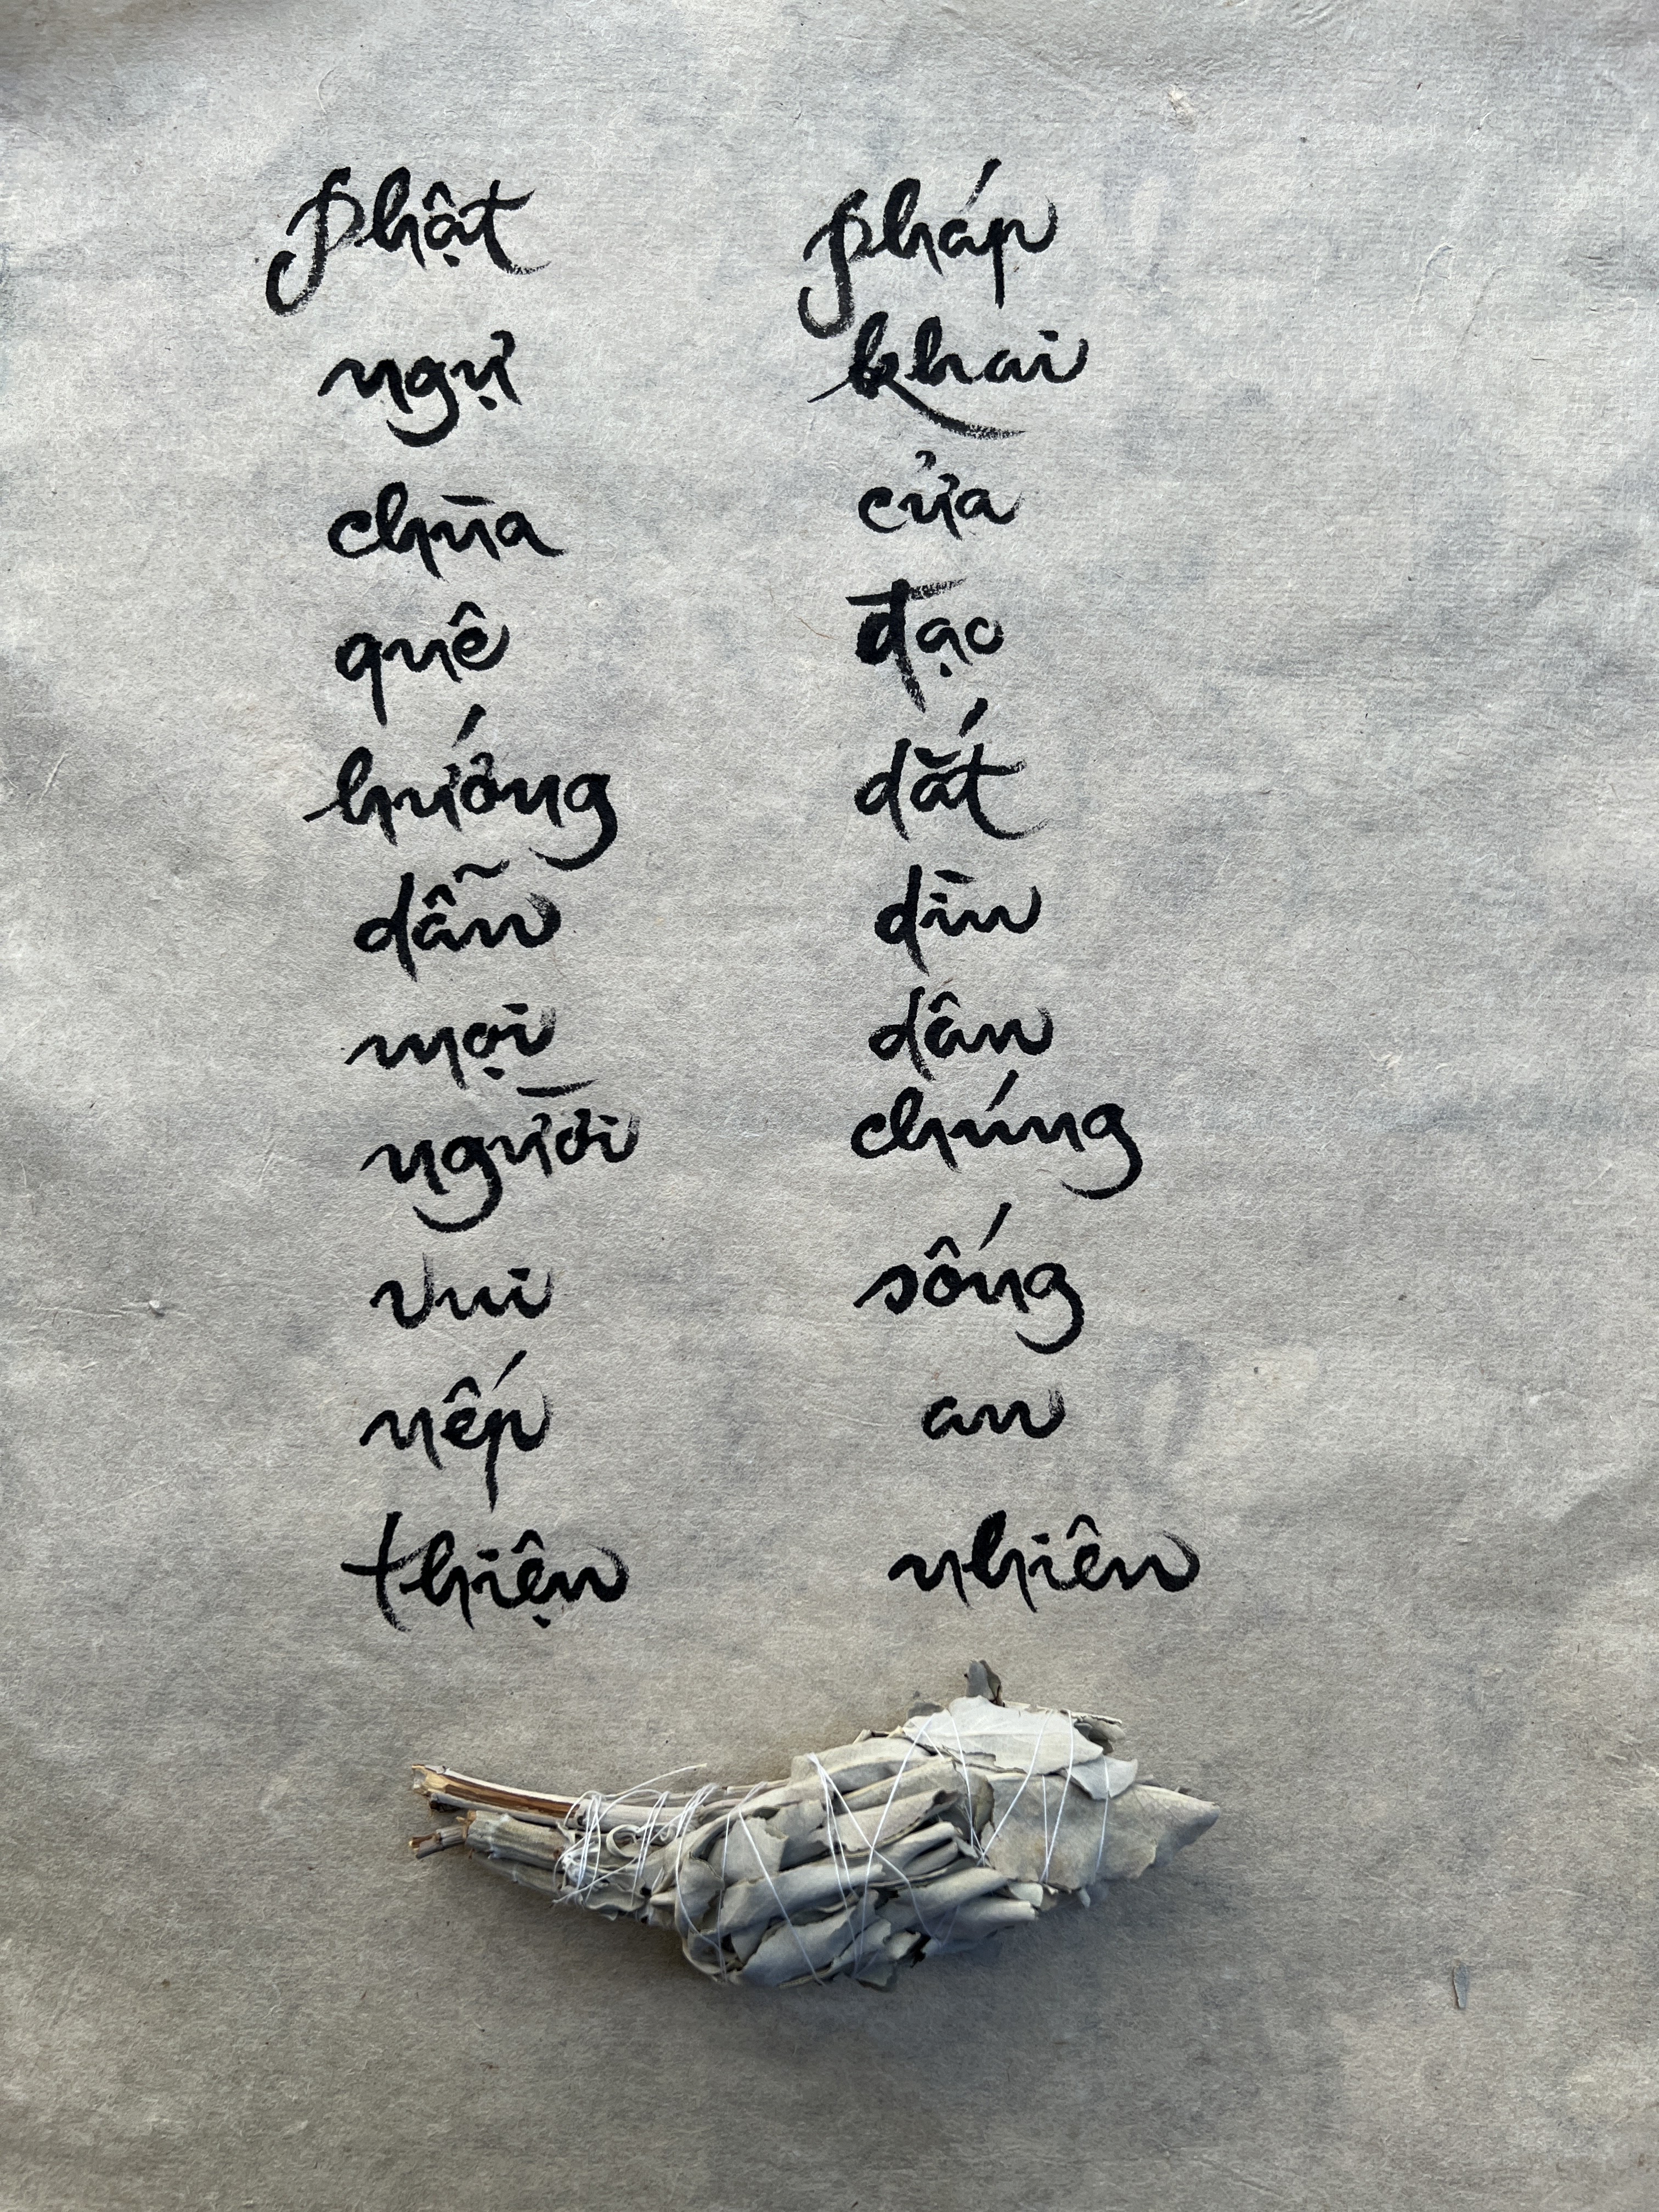 Phật
ngự
chùa
quê
hướng
dẫn
mọi
người
vui
nếp
thiện
Pháp
khai
cửa
đạo
dắt
dìu
dân
chúng
sống
an
nhiên